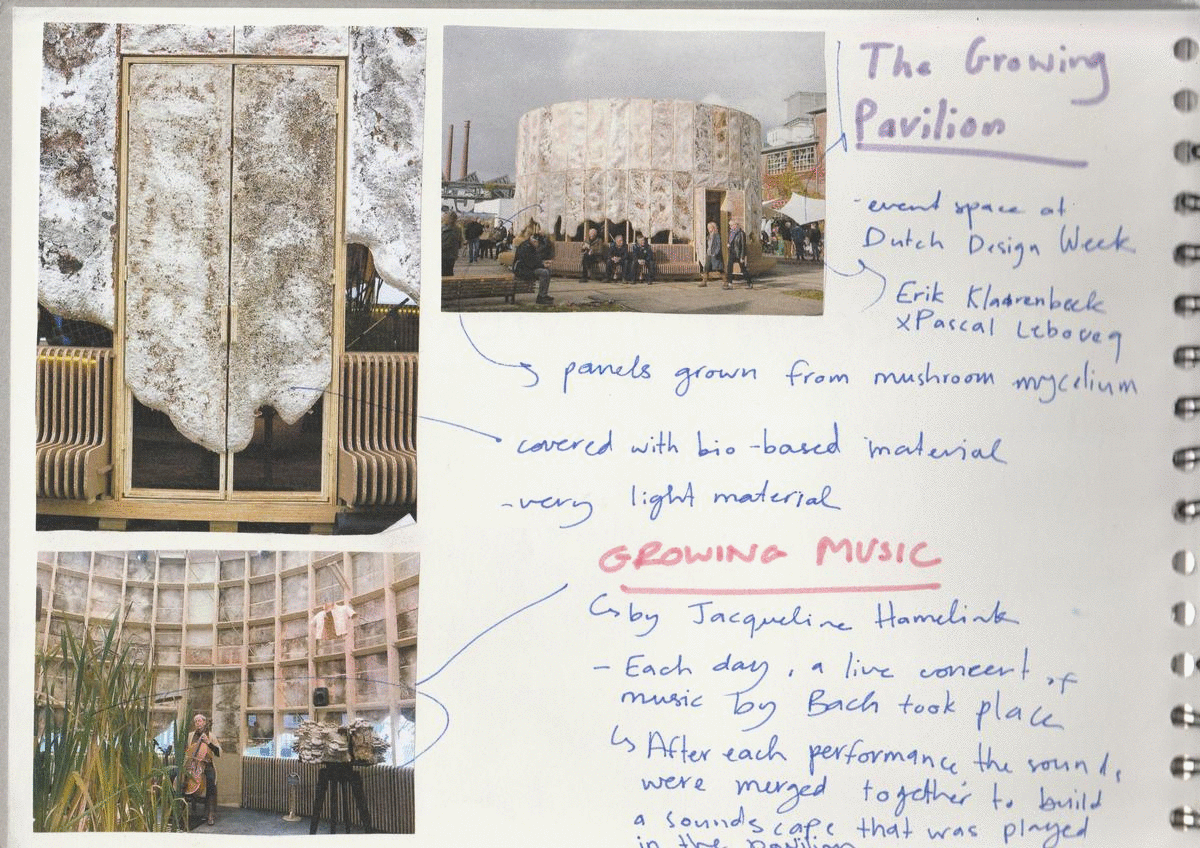 The Growing
Pavilion
- event space at
Dutch Design Week
Erik Klaarenbeek
x Pascal Leboucq
panels grown from mushroom mycelium
covered with bio-based material
- very light material
GROWING MUSIC
↳ by Jacqueline Hamelink
- Each day, a live concert of
music by Bach took place
↳ After each performance the sounds
were merged together to build
a soundscape that was played
in the pavilion